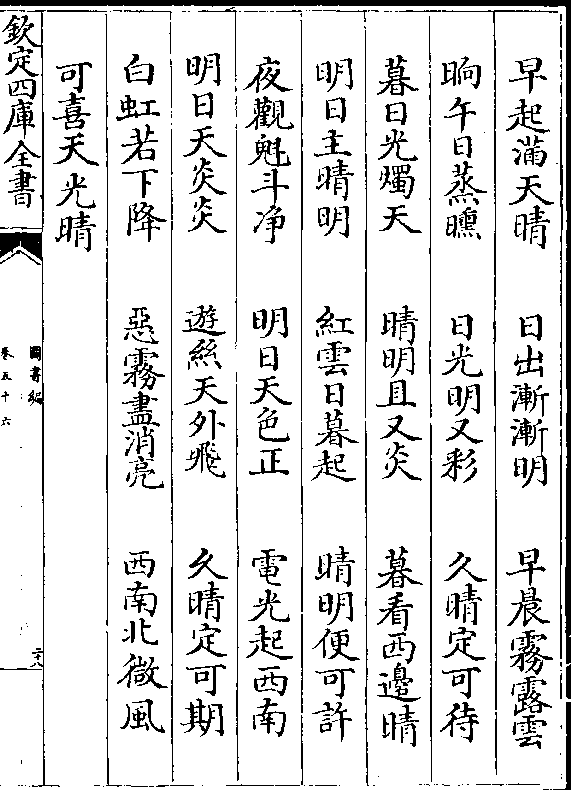 早起滿天晴　日出漸漸明　早晨霧露雲
晌午日蒸曛　日光明又彩　久晴定可待
暮日光燭天　晴明且又炎　暮看西邊晴
明日主晴明　紅雲日暮起　晴明便可許
夜觀魁斗净　明日天色正　電光起西南
明日天炎炎　遊絲天外飛　久晴定可期
白虹若下降　惡霧盡消亮　西南北微風
可喜天光晴
欽定四庫全書
圖書編
卷五十六